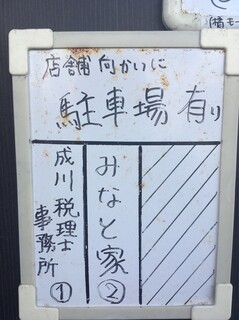 店舗向かいに
駐車場有り
みなと家②
成川税理士
事務所①